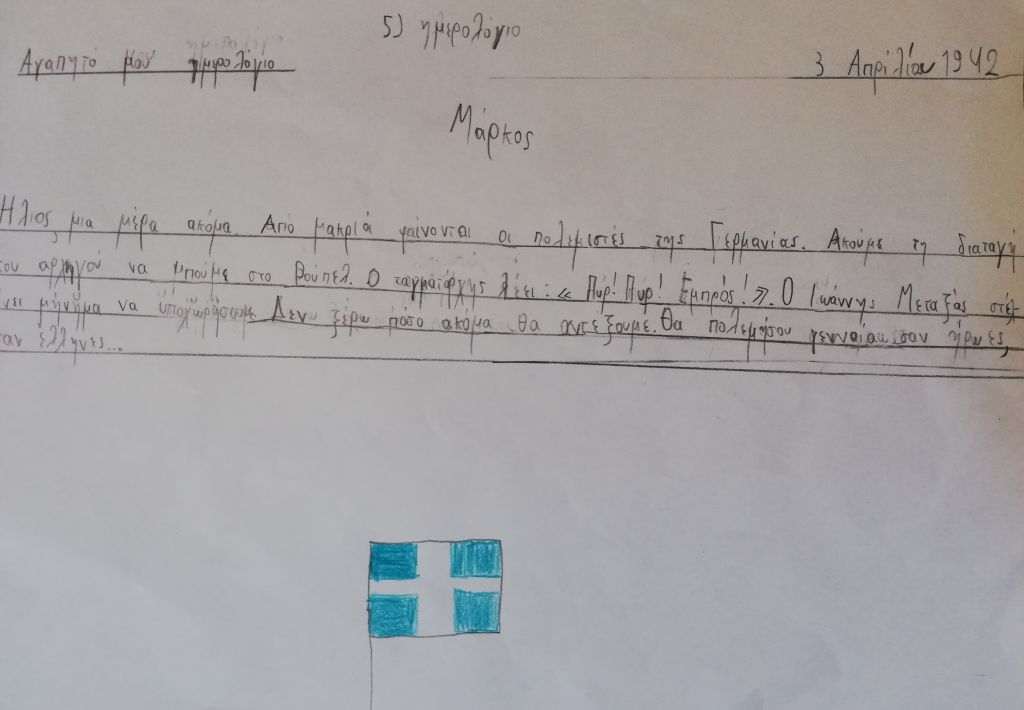 5) ημερολόγιο
Αγαπητό μου ημερολόγιο
3 Απριλίου 1942
Μάρκος
Ηλιος, μια μέρα ακόμα. Από μακριά φαίνονται οι πολεμιστές της Γερμανίας. Ακούμε τη διαταγή
του αρχηγού να μπούμε στο Ρούπελ. Ο ταγματάρχης λέει: « Πυρ! Πυρ! Εμπρός! ». Ο Ιωάννης Μεταξάς στέλ-
νει μήνημα να υποχωρήσουμε. Δεν ξέρω πόσο ακόμα θα αντέξουμε. Θα πολεμήσου γενναία σαν ήρωες,
σαν έλληνες...